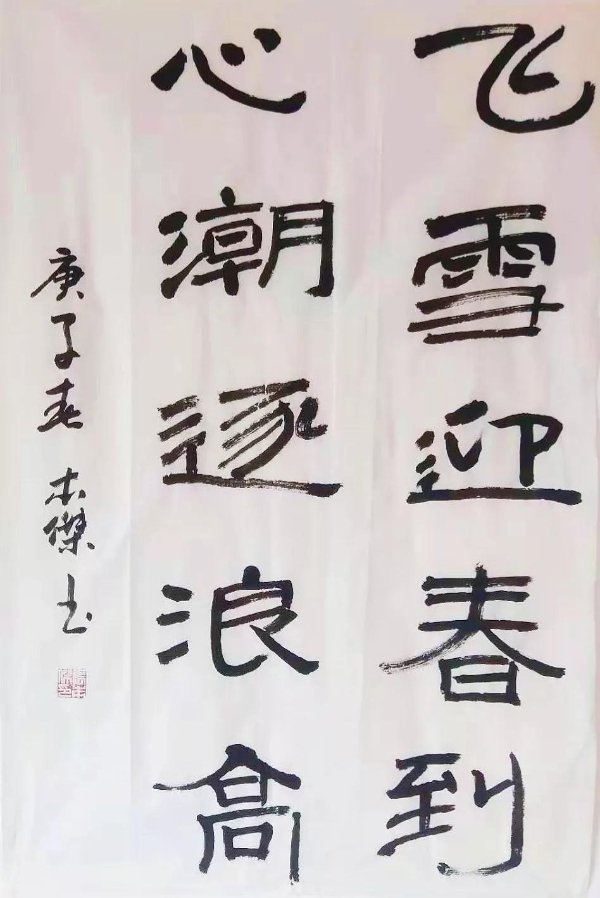 飞雪迎春到
心潮逐浪高
庚子春 木傑书